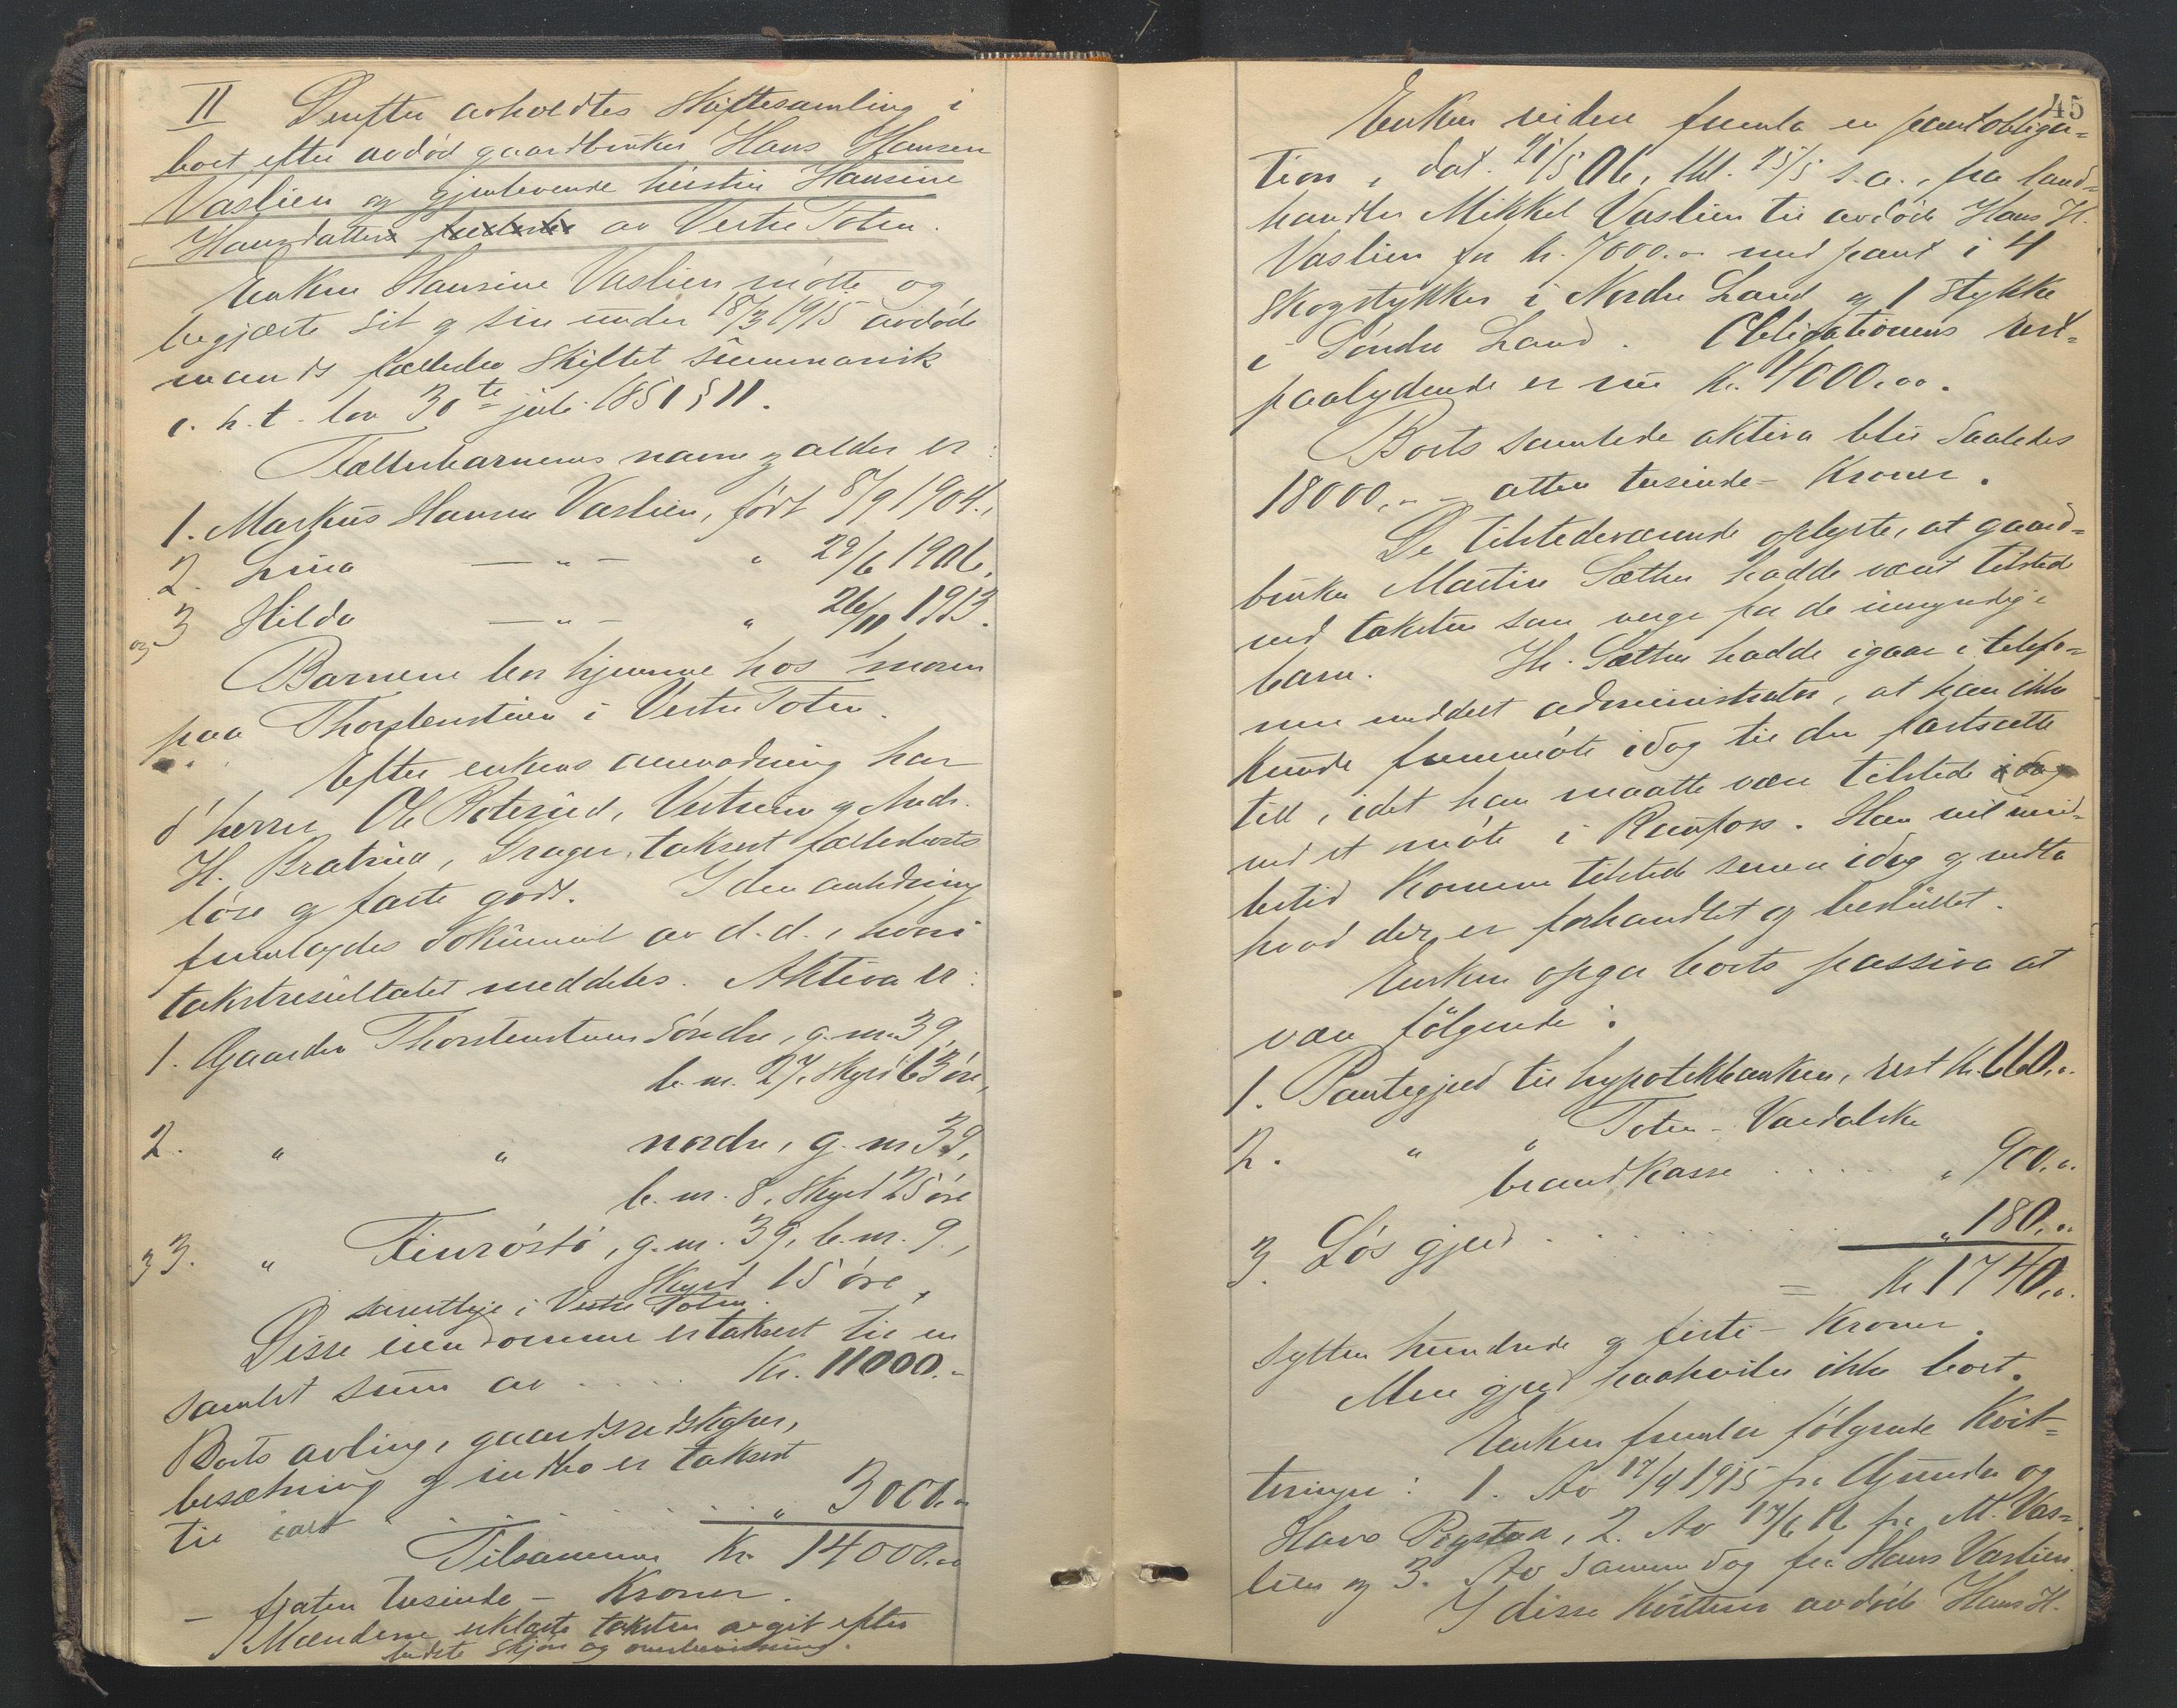 II Derefter avholdtes Skiftesamling i
boet efter avdød gaardbruker Hans Hansen
Vaslien og gjenlevende hustru Hansine
Hansdatter av Vestre Toten.
Enken Hansine Vaslien møtte og
begjærte sit og sin under 18/3 1915 avdøde
mands fællesbo skiftet summarisk
i. h. t. lov 30te juli 1851 § 11.
Fællesbarnenes navne og alder er:
1. Markus Hansen Vaslien, født 8/9 1904.,
2. Lina — " — " 29/6 1906.
og 3 Hilda — " — " 26/11 1913.
Barnene bor hjemme hos moren
paa Thorstenstuen i Vestre Toten.
Efter enkens anmodning har
d'herrer Ole Roterud, Vestrum og Andr.
H. Bratrud, taksert fællesboets
løse og faste gods. I den anledning
fremlagdes dokument av d.d., hvori
takstresultatet meddeles. Aktiva er:
1. Gaarden Thorstenstuen søndre, g.nr. 39,
b. nr. 27, skyld 63 øre,
2. " " nordre, g. nr 39,
b. nr. 8, skyld 25 øre
3. " Finrøstø, g.nr. 39, b.nr. 9,
skyld 15 øre,
samtlige i Vestre Toten.
Disse eiendomme er taksert til en
samlet sum av . . . . . Kr. 11000.-
Boets avling, gaardsredskaper,
besætning og indbo er taksert
til ialt . . . . . . . " 3000.-
Tilsammen Kr. 14000.00
- fjorten tusinde - Kroner.
Mændene erklærte taksten avgit efter
bedste skjøn og overbevisning.
45
Enken videre fremla en pantobliga=
tion, dat. 21/5 06, thl. 25/5 s.a., fra land=
handler Mikkel Vaslien til avdøde Hans H.
Vaslien for kr. 7000.00 med pant i 4
skogstykker i Nordre Land og 1 stykke
i Søndre Land. Obligationens rest=
paalydende er nu kr. 4000.00.
Boets samlede aktiva blir saaledes
18000,- - atten tusinde - Kroner.
De tilstedeværende oplyste, at gaard=
bruker Martin Sæther hadde været tilstede
ved taksten som verge for de umyndige
barn. Hr. Sæther hadde igaar i telefo=
nen meddelt administrator, at han ikke
kunde fremmøte idag til den fastsatte
tid, idet han maatte være tilstede idag
ved et møte i Raufoss. Han vil imid=
lertid komme tilstede senere idag og vedta
hvad der er forhandlet og besluttet.
Enken opga boets passiva at
være følgende:
1. Pantegjeld til hypotekbanken, rest kr. 660.00
2. " " Toten-Vardalske
brandkasse . . . . . " 900.00
3. Løs gjeld . . . . . . . " 180.00
= Kr 1740.00
sytten hundrede og firti - Kroner.
Mere gjeld paahviler ikke boet.
Enken fremla følgende kvit=
teringer: 1. Av 17/4 1915 fra Gunda og
Hans 2. Av 17/6 16 fra M. Vas=
lien og 3. Av samme dag fra Hans Vaslien
I disse kvitterer avdøde Hans H.